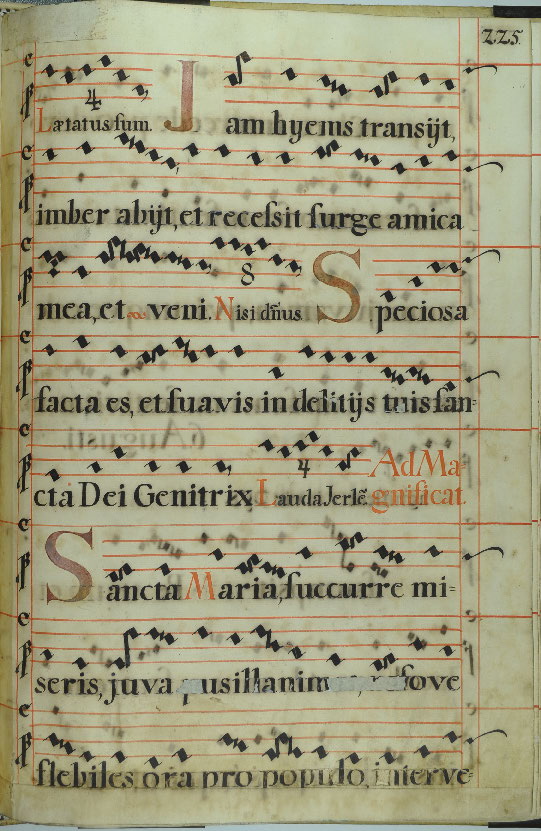 225.
4
Lætatus sum. Jam hyems transijt,
imber abijt, et recessit surge amica
8
mea, et veni. Nisi dñus Speciosa
facta es, et suavis in delitijs tuis san=
4 Ad Ma=
cta Dei Genitrix Lauda Jerlē. gnificat.
Sancta Maria, succurre mi=
seris, juva pusillanim refove
flebiles ora pro populo, interve=